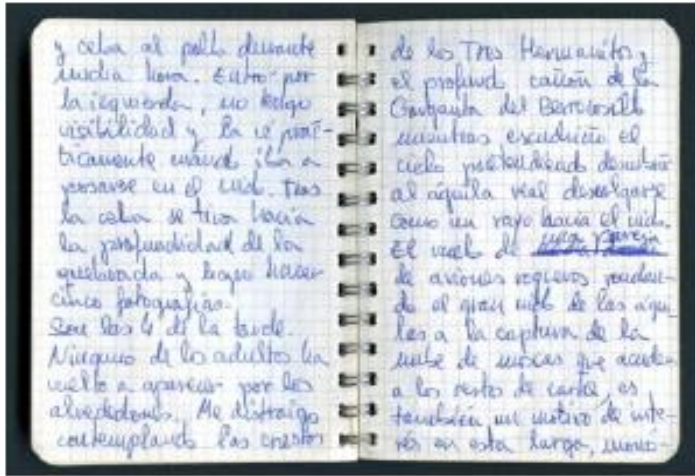 y ceba al pollo durante
media hora. Entró por
la izquierda, no tengo
visibilidad y la vi prác-
ticamente cuando iba a
posarse en el nido. Tras
la ceba se tira hacia
la profundidad de la
quebrada y logro hacer
cinco fotografías.
Son las 4 de la tarde.
Ninguno de los adultos ha
vuelto a aparecer por los
alrededores. Me distraigo
contemplando las crestas
de los Tres Hermanitos y
el profundo cañón de la
Garganta del
mientras escudriño el
cielo pretendiendo descubrir
al águila real descolgarse
como un rayo hacia el nido.
El vuelo de una pareja
de aviones roqueros rondan-
do el gran nido de las águi-
las a la captura de la
nube de moscas que acuden
a los restos de carne, es
también un motivo de inte-
rés en esta larga, monó-